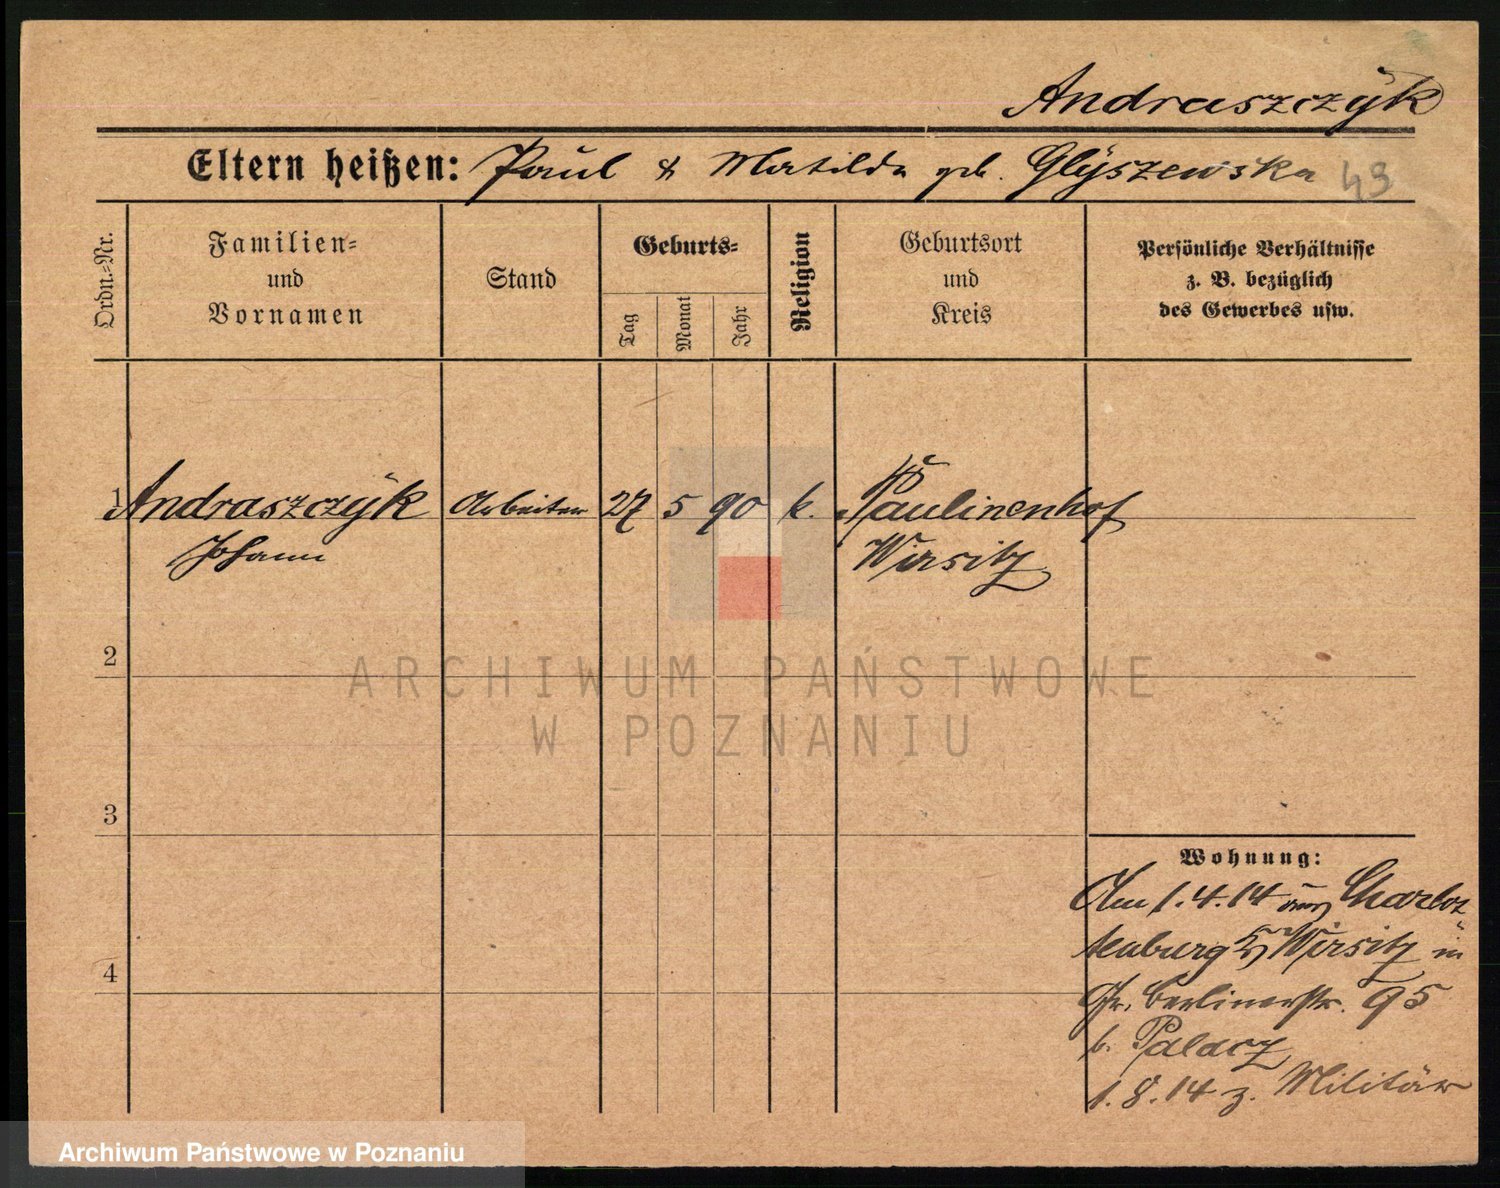 Andraszczÿk
Eltern heißen: Paul & Matilda geb. Glÿszewska 43
Ordn.=Nr.
Familien=
und
Vornamen
Stand
Geburts=
Tag
Monat
Jahr
Religion
Geburtsort
und
Kreis
Persönliche Verhältnisse
z. B. bezüglich
des Gewerbes usw.
1 Andraszczÿk Arbeiter 27 5 90 k. Paulinenhof
Johann Wirsitz
2
3
4
Wohnung:
Am 1.4.14 aus Charlot
tenburg Wirsitz in
Gr. Berlinerstr. 95
b. Palacz
1.8.14 z. Militär
ARCHIWUM PAŃSTWOWE
W POZNANIU
Archiwum Państwowe w Poznaniu